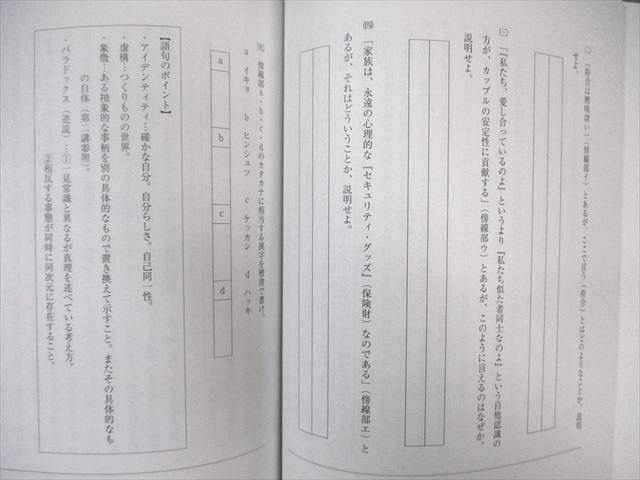 ㈡ 「符合は興味深い」(傍線部イ)とあるが、ここで言う「符合」とはどのようなことか、説明
せよ。
㈢ 「『私たち、愛し合っているのよ』というより『私たち似た者同士なのよ』という自他認識の
方が、カップルの安定性に貢献する」(傍線部ウ)とあるが、このように言えるのはなぜか、
説明せよ。
㈣ 「家族は、永遠の心理的な『セキュリティ・グッズ』(保険財)なのである」(傍線部エ)と
あるが、それはどういうことか、説明せよ。
㈤ 傍線部a・b・c・dのカタカナに相当する漢字を楷書で書け。
a イキョ b ヒンシュツ c ケッカン d ハッキ
a b c d
【語句のポイント】
・アイデンティティ…確かな自分。自分らしさ。自己同一性。
・虚構…つくりものの世界。
・象徴…ある抽象的な事柄を別の具体的なもので置き換えて示すこと。またその具体的なも
の自体(第二講参照)。
・パラドックス(逆説)…①一見常識と異なるが真理を述べている考え方。
②相反する事態が同時に同次元に存在すること。